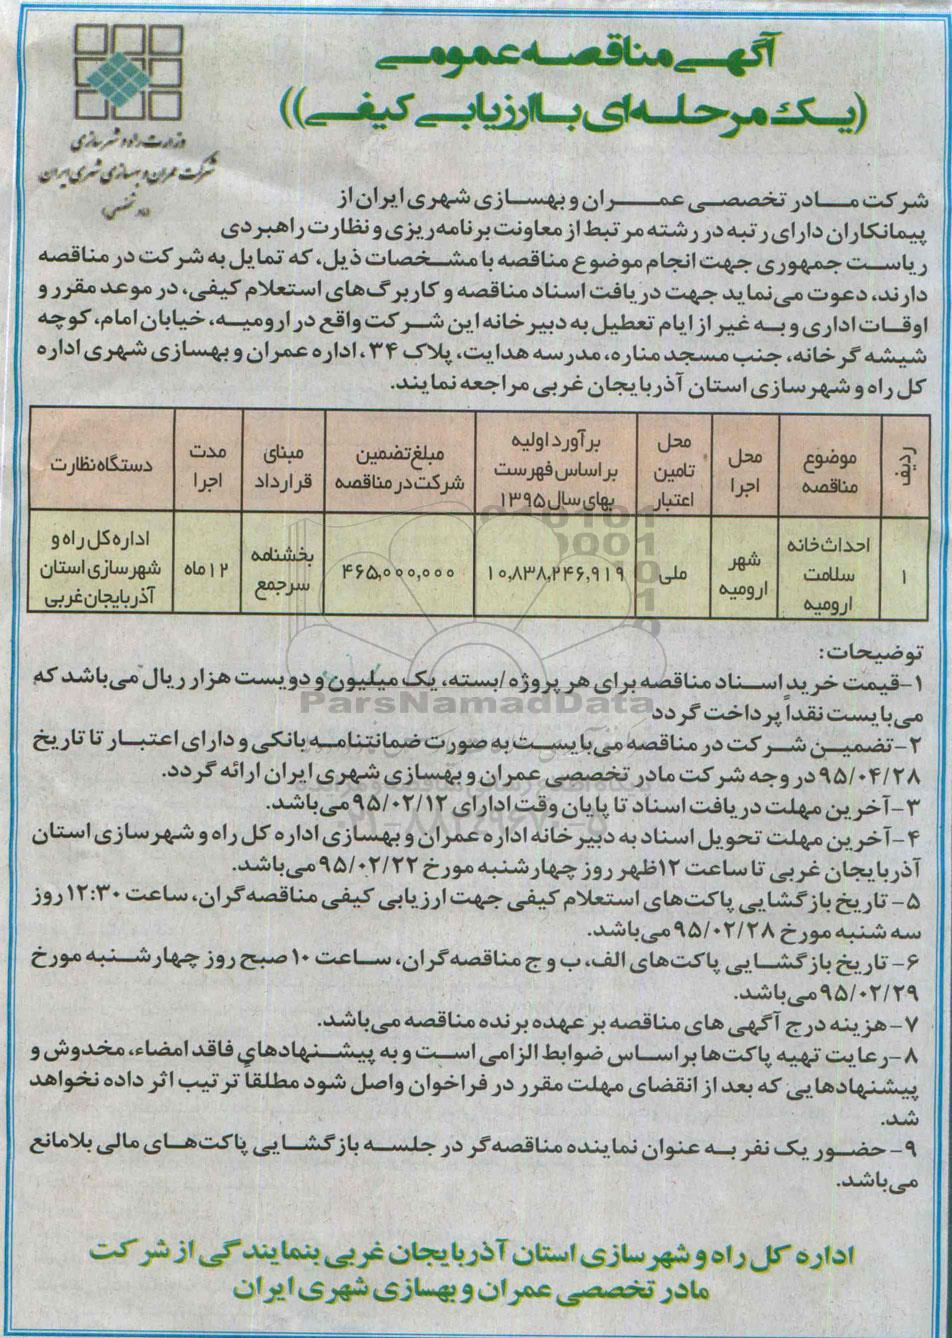 آگهی مناقصه عمومی
(یک مرحله‌ای با ارزیابی کیفی))
وزارت راه و شهرسازی
شرکت عمران و بهسازی شهری ایران
شرکت مادر تخصصی عمران و بهسازی شهری ایران از
پیمانکاران دارای رتبه در رشته مرتبط از معاونت برنامه‌ریزی و نظارت راهبردی
ریاست جمهوری جهت انجام موضوع مناقصه با مشخصات ذیل، که تمایل به شرکت در مناقصه
دارند، دعوت می‌نماید جهت دریافت اسناد مناقصه و کاربرگ‌های استعلام کیفی، در موعد مقرر و
اوقات اداری و به غیر از ایام تعطیل به دبیرخانه این شرکت واقع در ارومیه، خیابان امام، کوچه
شیشه گرخانه، جنب مسجد مناره، مدرسه هدایت، پلاک ۳۴، اداره عمران و بهسازی شهری اداره
کل راه و شهرسازی استان آذربایجان غربی مراجعه نمایند.
ردیف | موضوع مناقصه | محل اجرا | محل تامین اعتبار | برآورد اولیه براساس فهرست بهای سال ۱۳۹۵ | مبلغ تضمین شرکت در مناقصه | مبنای قرارداد | مدت اجرا | دستگاه نظارت
۱ | احداث خانه سلامت ارومیه | شهر ارومیه | ملی | ۱۰,۸۳۸,۲۴۶,۹۱۹ | ۴۶۵,۰۰۰,۰۰۰ | بخشنامه سرجمع | ۱۲ ماه | اداره کل راه و شهرسازی استان آذربایجان غربی
توضیحات:
۱-قیمت خرید اسناد مناقصه برای هر پروژه /بسته، یک میلیون و دویست هزار ریال می‌باشد که
می‌بایست نقداً پرداخت گردد
ParsNamadData
۲-تضمین شرکت در مناقصه می‌بایست به صورت ضمانتنامه بانکی و دارای اعتبار تا تاریخ
۹۵/۰۴/۲۸ در وجه شرکت مادر تخصصی عمران و بهسازی شهری ایران ارائه گردد.
۳-آخرین مهلت دریافت اسناد تا پایان وقت ادارای ۹۵/۰۲/۱۲ می‌باشد.
۴-آخرین مهلت تحویل اسناد به دبیرخانه اداره عمران و بهسازی اداره کل راه و شهرسازی استان
آذربایجان غربی تا ساعت ۱۲ظهر روز چهارشنبه مورخ ۹۵/۰۲/۲۲ می‌باشد.
۵- تاریخ بازگشایی پاکت‌های استعلام کیفی جهت ارزیابی کیفی مناقصه‌گران، ساعت ۱۲:۳۰ روز
سه شنبه مورخ ۹۵/۰۲/۲۸ می‌باشد.
۶- تاریخ بازگشایی پاکت‌های الف، ب و ج مناقصه‌گران، ساعت ۱۰ صبح روز چهارشنبه مورخ
۹۵/۰۲/۲۹ می‌باشد.
۷-هزینه درج آگهی های مناقصه بر عهده برنده مناقصه می‌باشد.
۸-رعایت تهیه پاکت‌ها براساس ضوابط الزامی است و به پیشنهادهای فاقد امضاء، مخدوش و
پیشنهادهایی که بعد از انقضای مهلت مقرر در فراخوان واصل شود مطلقاً ترتیب اثر داده نخواهد
شد.
۹- حضور یک نفر به عنوان نماینده مناقصه‌گر در جلسه بازگشایی پاکت‌های مالی بلامانع
می‌باشد.
اداره کل راه و شهرسازی استان آذربایجان غربی بنمایندگی از شرکت
مادر تخصصی عمران و بهسازی شهری ایران